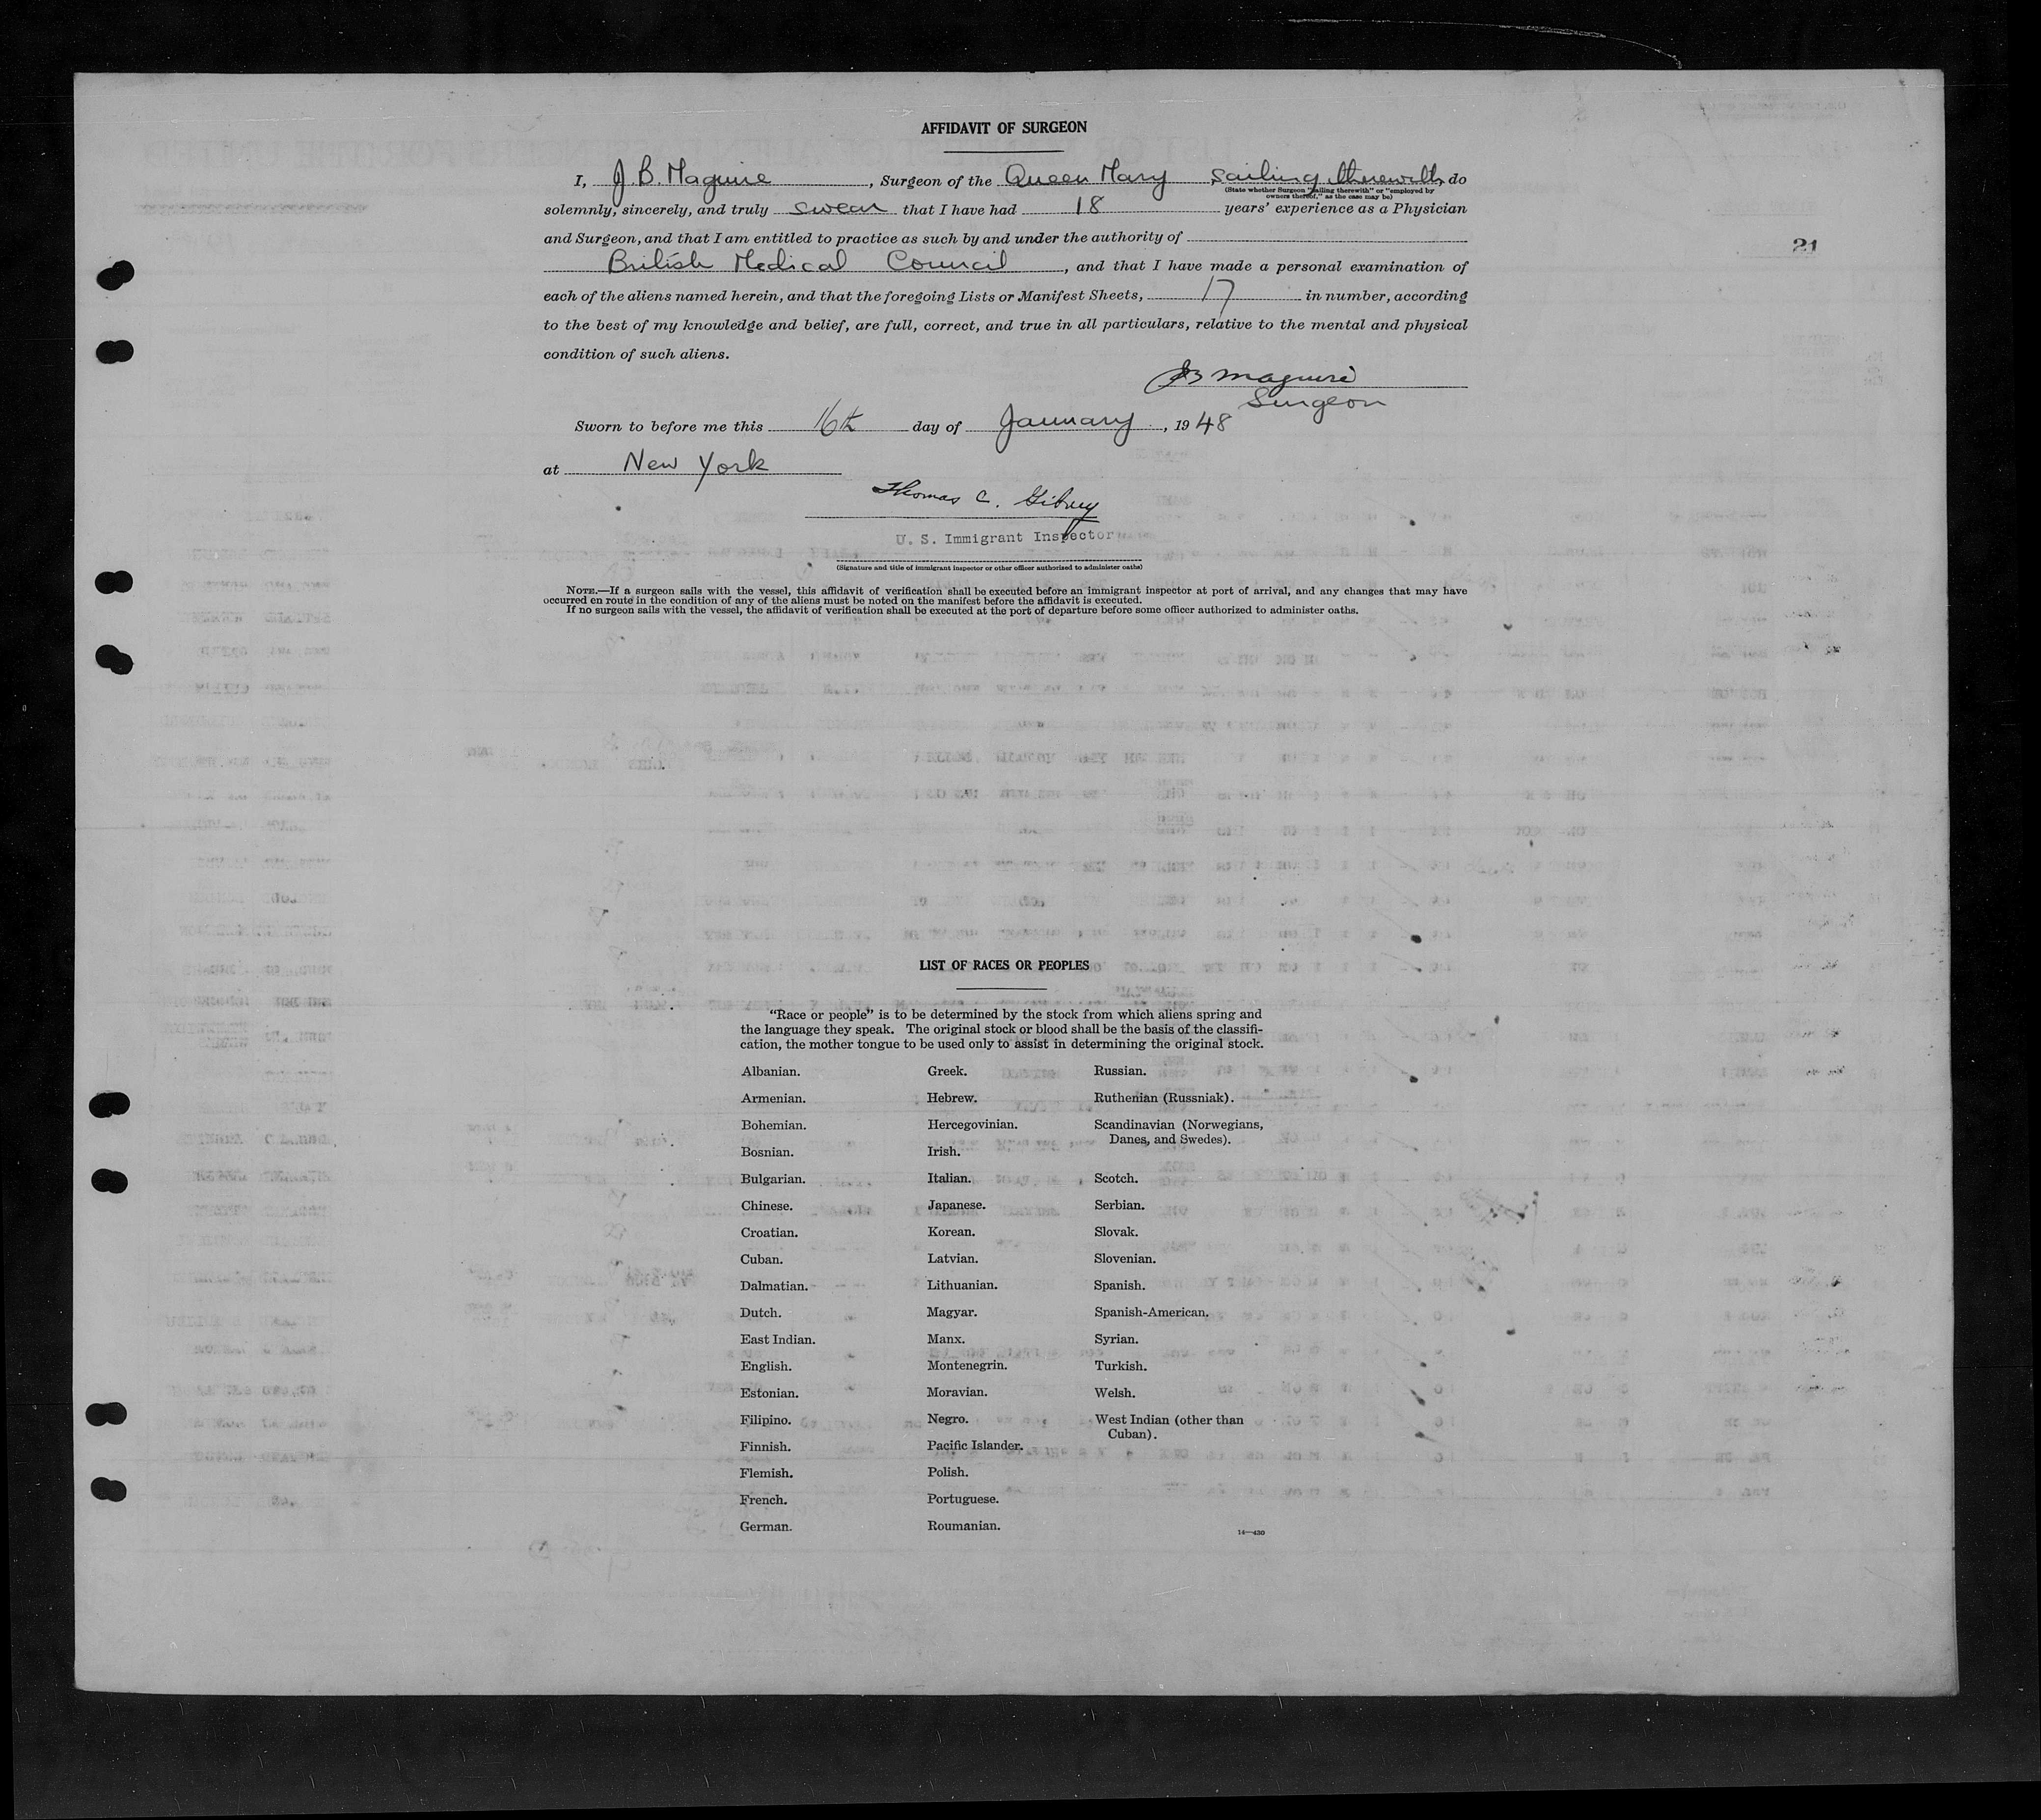 AFFIDAVIT OF SURGEON
I, J. B. Maguire, Surgeon of the Queen Mary sailing therewith, do
(State whether Surgeon "sailing therewith" or "employed by
owners thereof," as the case may be)
solemnly, sincerely, and truly swear that I have had 18 years' experience as a Physician
21
and Surgeon, and that I am entitled to practice as such by and under the authority of
British Medical Council, and that I have made a personal examination of
each of the aliens named herein, and that the foregoing Lists or Manifest Sheets, 17 in number, according
to the best of my knowledge and belief, are full, correct, and true in all particulars, relative to the mental and physical
condition of such aliens.
JB Maguire
Surgeon
Sworn to before me this 16th day of January, 1948
at New York
Thomas C. Gibney
U. S. Immigrant Inspector
(Signature and title of immigrant inspector or other officer authorized to administer oaths)
NOTE.—If a surgeon sails with the vessel, this affidavit of verification shall be executed before an immigrant inspector at port of arrival, and any changes that may have
occurred en route in the condition of any of the aliens must be noted on the manifest before the affidavit is executed.
If no surgeon sails with the vessel, the affidavit of verification shall be executed at the port of departure before some officer authorized to administer oaths.
LIST OF RACES OR PEOPLES
"Race or people" is to be determined by the stock from which aliens spring and
the language they speak. The original stock or blood shall be the basis of the classifi-
cation, the mother tongue to be used only to assist in determining the original stock.
Albanian.
Armenian.
Bohemian.
Bosnian.
Bulgarian.
Chinese.
Croatian.
Cuban.
Dalmatian.
Dutch.
East Indian.
English.
Estonian.
Filipino.
Finnish.
Flemish.
French.
German.
Greek.
Hebrew.
Hercegovinian.
Irish.
Italian.
Japanese.
Korean.
Latvian.
Lithuanian.
Magyar.
Manx.
Montenegrin.
Moravian.
Negro.
Pacific Islander.
Polish.
Portuguese.
Roumanian.
Russian.
Ruthenian (Russniak).
Scandinavian (Norwegians,
Danes, and Swedes).
Scotch.
Serbian.
Slovak.
Slovenian.
Spanish.
Spanish-American.
Syrian.
Turkish.
Welsh.
West Indian (other than
Cuban).
14—430